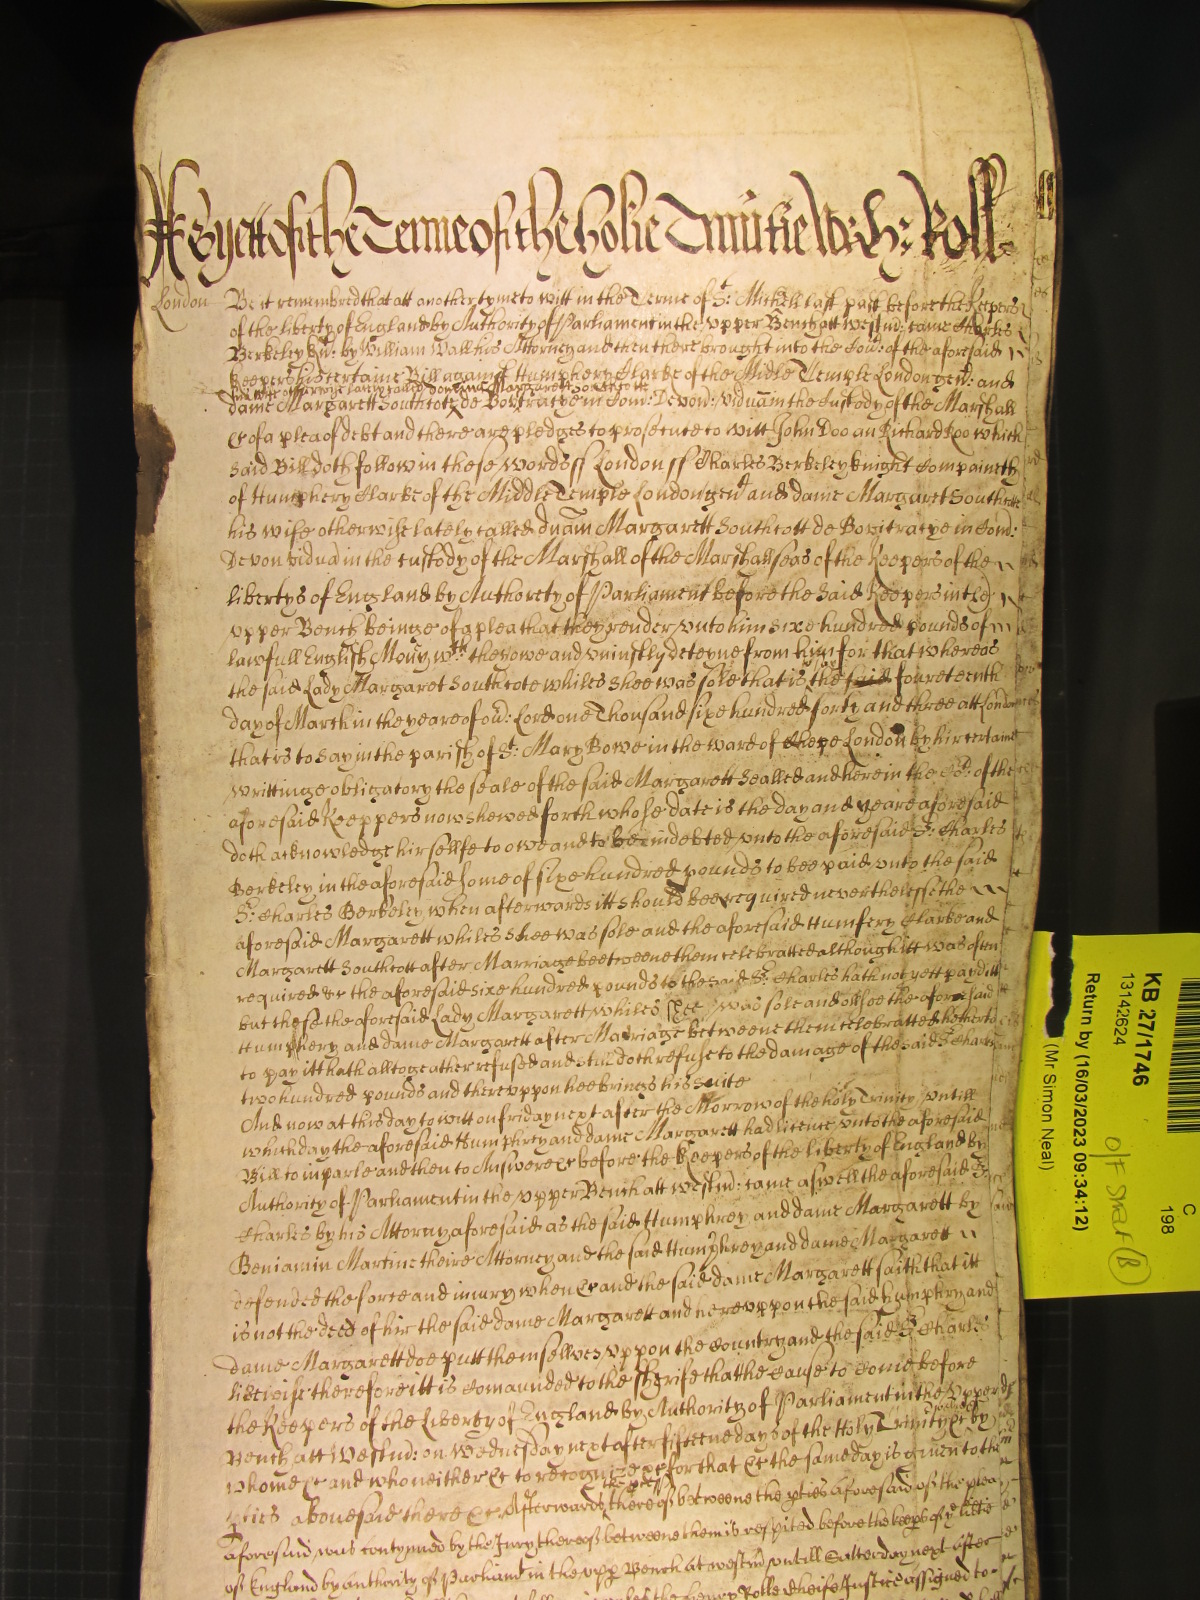 As yett of the Terme of the holie Trinitie Roll
London Be it remembred that att another tyme to witt in the Terme of St: Michaell last past before the Keepers
of the liberty of England by Authority of Parliament in the upper Bench att westmr: came Charles
Berkeley Knt: by William Wall his Attorney and then there brought into the Court: of the aforesaid
Keepers his certaine Bill against Humphery Clarke of the Midle Temple London gent: and
his wife otherwise lately called dominam Margarett Southcott
dame Margarett Southcote de Bovitracye in Com: Devon: viduam in the Custody of the Marshall
&c of a plea of debt and there are pledges to prosecute to witt John Doo an Richard Roo which
said Bill doth follow in these words ss London ss Charles Berkeley knight Complaineth
of Humphery Clarke of the Middle Temple London gent and dame Margaret Southcott
his wife otherwise lately called dnam Margarett Southcott de Bovitracye in Com:
Devon vidua in the custody of the Marshall of the Marshallseas of the Keepers of the
libertys of England by Authorety of Parliament before the said Keepers in the
upper Bench beinge of a plea that they render unto him sixe hundred pounds of
lawfull English Mony wch they owe and uniustly deteyne from him for that whereas
the said Lady Margaret Southcote whiles shee was sole that is the said fourteenth
day of March in the yeare of our: Lord one Thousand sixe hundred forty and three att London
that is to say in the parish of St: Mary Bowe in the ward of Chepe London by hir certaine
writtinge obligatory the seale of the said Margarett sealled and herein the Crt: of the
aforesaid Keeppers now shewed forth whose date is the day and yeare aforesaid
doth acknowledge hirsellfe to owe and to bee indebted unto the aforesaid Sr: Charles
Berkeley in the aforesaid some of sixe hundred pounds to bee paid unto the said
Sr: Charles Berkeley when afterwards itt should bee required neverthelesse the
aforesaid Margarett whiles shee was sole and the aforesaid Humfery Clarke and
Margarett Southcott after Marriage beetweene them celebratted although itt was often
required &c the aforesaid sixe hundred pounds to the said Sr: Charles hath not yett payd itt
but these the aforesaid Lady Margarett whiles shee was sole and allsoe the aforesaid
Humphery and dame Margarett after Marriage betweene them celebratted hetherto
to pay itt hath alltogeather refused and still doth refuse to the damage of the said Sr Charles
two hundred pounds and thereuppon hee brings his suite
And now at this day to witt on friday next after the Morrow of the holy Trinity untill
which day the aforesaid Humphrey and dame Margarett had licence unto the aforesaid
Bill to imparle and then to Answere &c before the Keepers of the liberty of England by
Authority of Parliament in the upper Bench att westmr: came aswell the aforesaid Sr:
Charles by his Attorny aforesaid as the said Humphrey and dame Margarett by
Beniamin Martine theire Attorney and the said Humphrey and dame Margarett
defended the force and iniury when &c and the said dame Margarett saith that itt
is not the deed of hir the said dame Margarett and hereuppon the said Humphry and
dame Margarett doe putt themsellves uppon the Country and the said Sr Charles
likewise therefore itt is Comaunded to the sherife that he cause to Come before
the Keepers of the Liberty of England by Authority of Parliament in the upper
Bench att Westmr: on Wednesday next after fifteene dayes of the Holy Trinity &c by
whome &c and who neither &c to recognize &c for that &c the same day is given to the
pties abovesaid there &c Afterwards the pces thereof betweene the pties aforesaid of the plea
aforesaid was contynued by the Jury thereof betweene them is respited before the keeps of ye libtie
of England by authority of Parliamt in the uppr Bench at westmr untill Satterday next after
Henry Rolle Cheife Justice assigned to
KB 27/1746
13142624
Return by (16/03/2023 09:34:12)
(Mr Simon Neal)
C
198